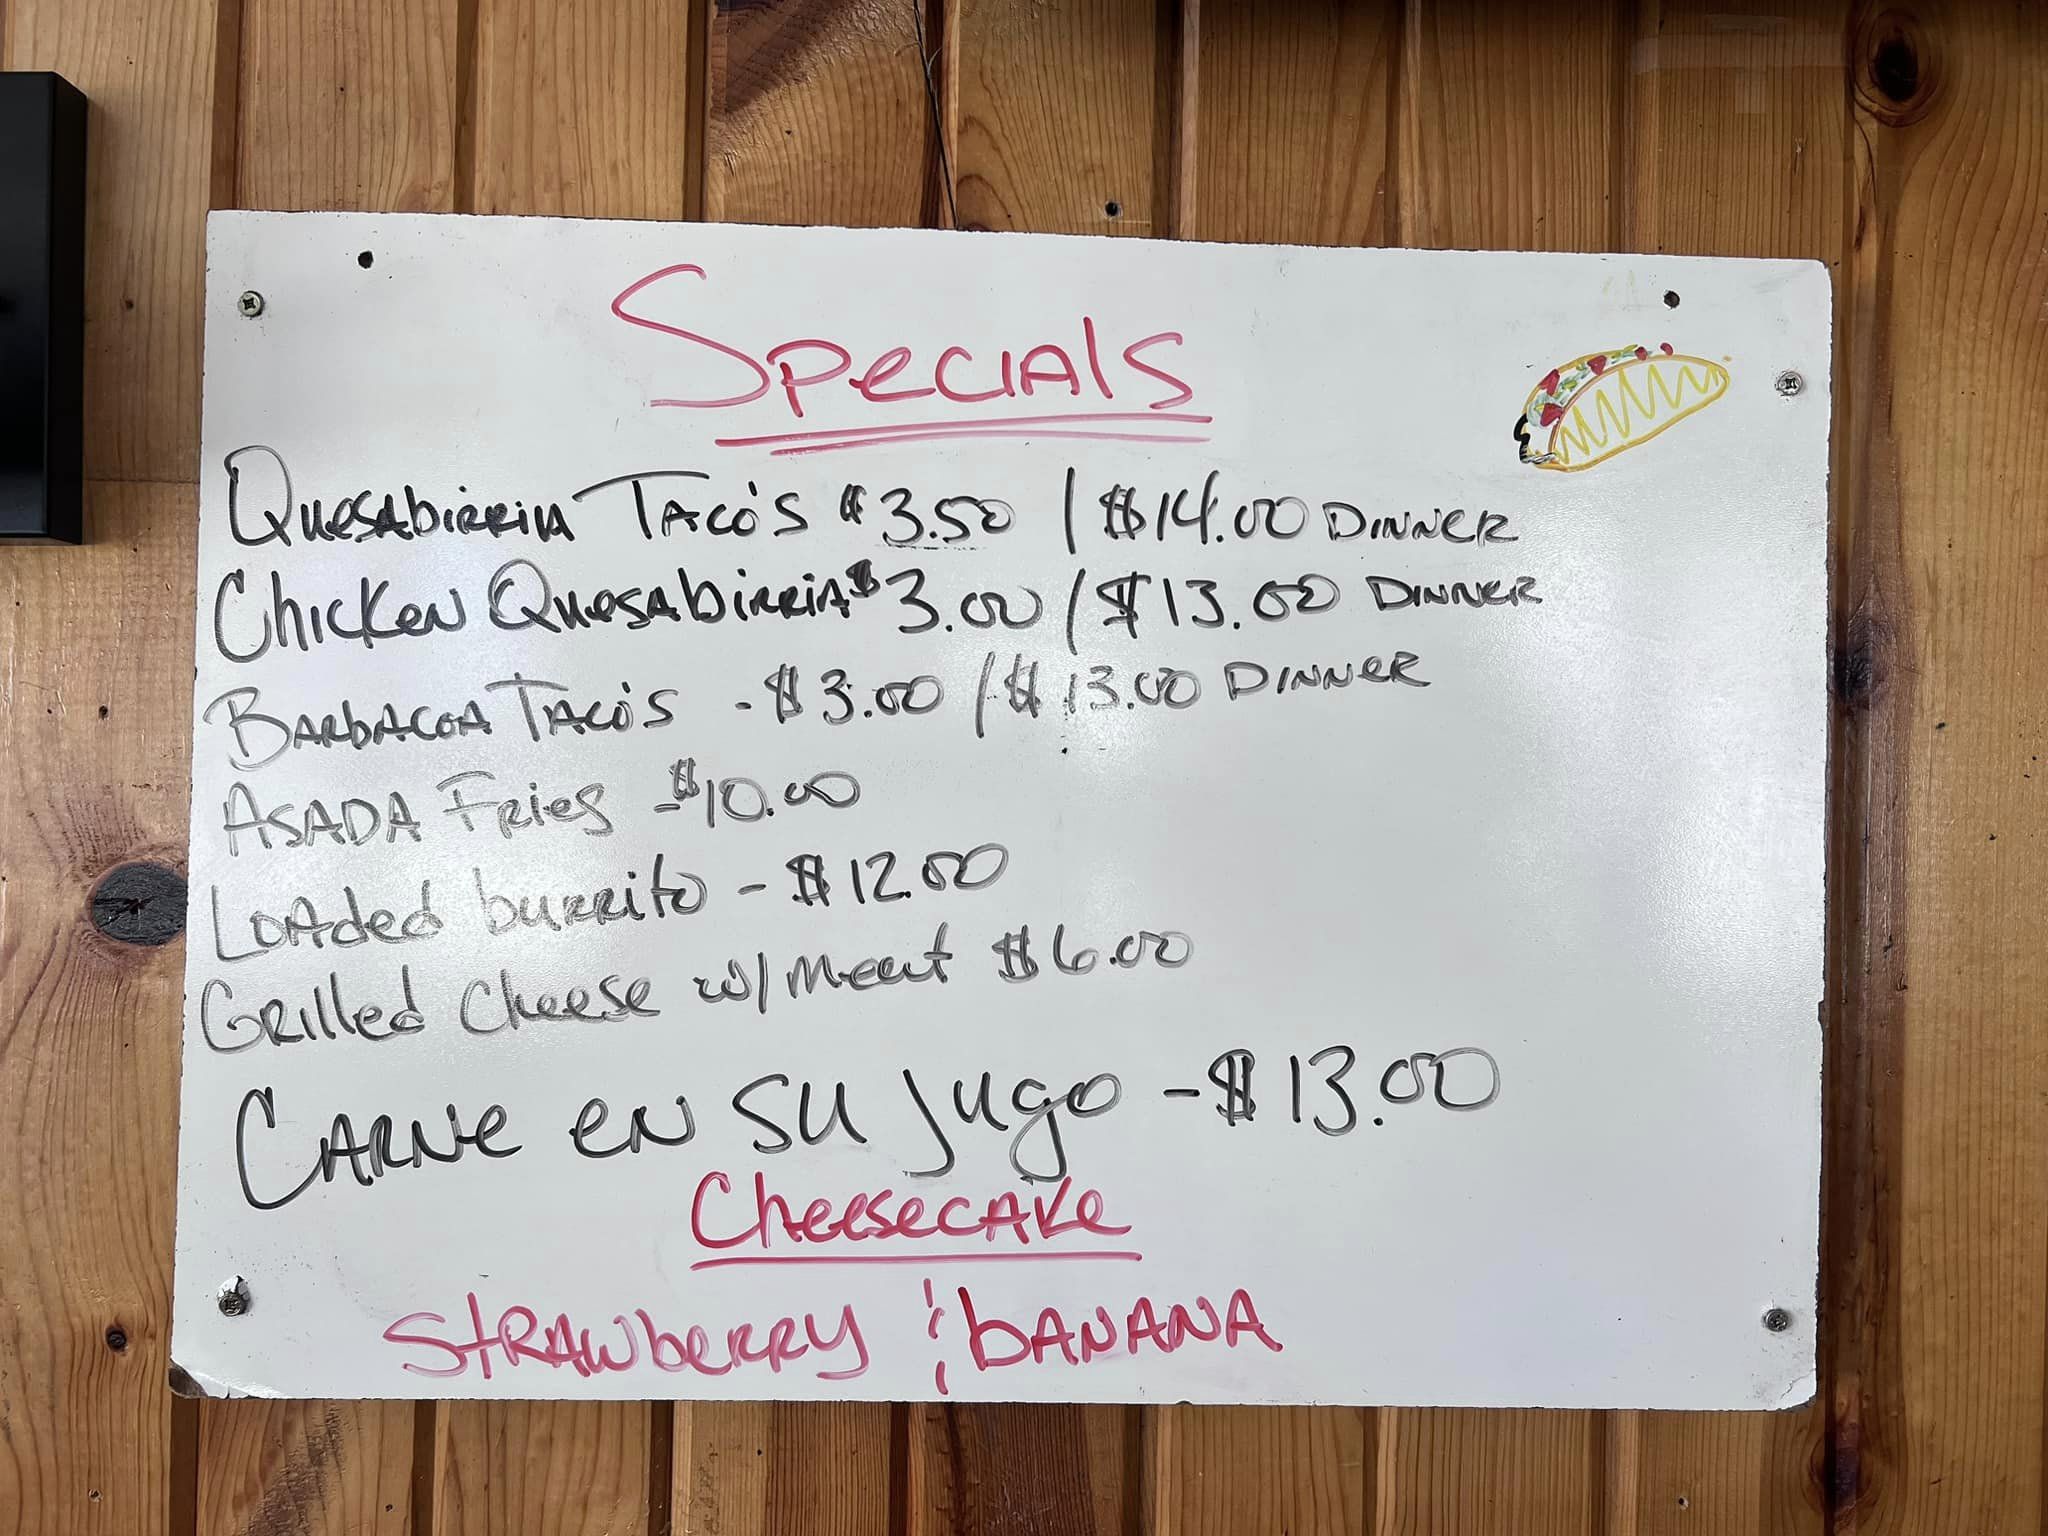 Specials
Quesabirria Taco's $3.50 / $14.00 Dinner
Chicken Quesabirria $3.00 / $13.00 Dinner
Barbacoa Taco's - $3.00 / $13.00 Dinner
Asada Fries - $10.00
Loaded burrito - $12.00
Grilled Cheese w/ meat $6.00
Carne en su jugo - $13.00
Cheesecake
Strawberry ¦ banana